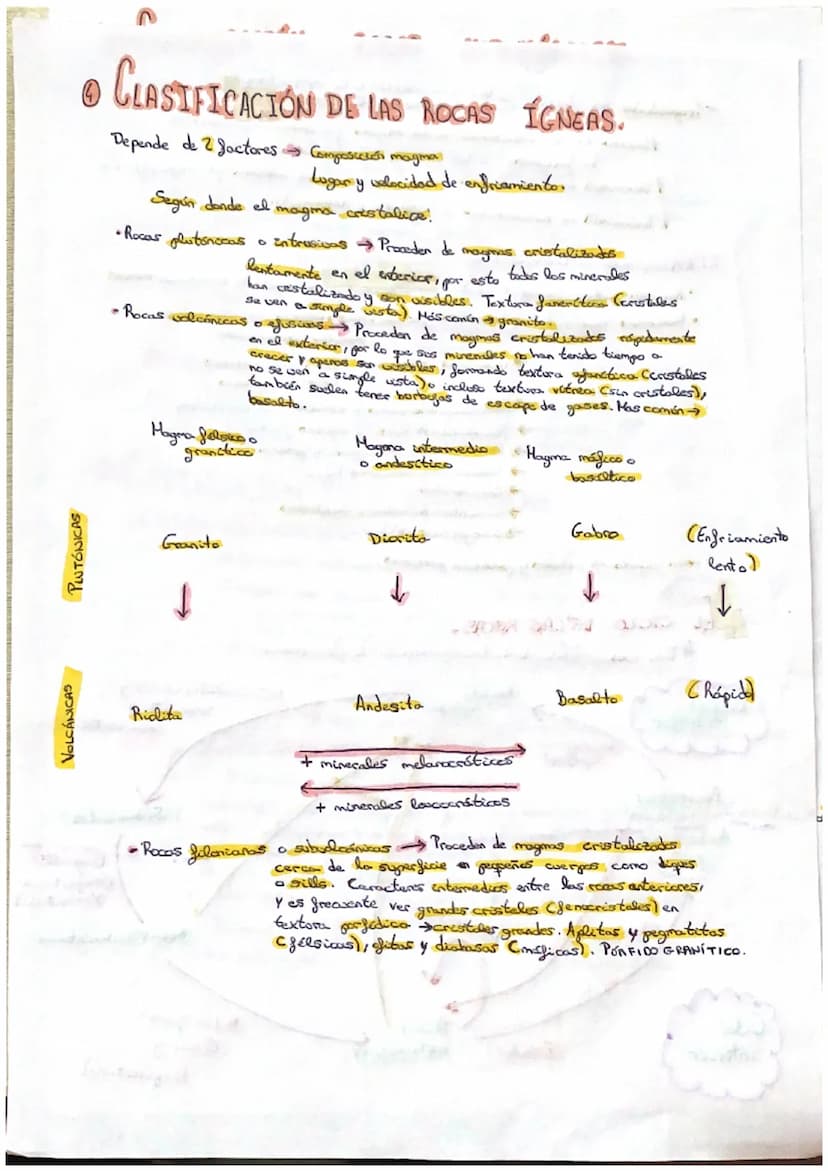 ④ CLASIFICACIÓN DE LAS ROCAS ÍGNEAS.
Depende de 2 factores → Composición magma
Lugar y velocidad de enfriamiento.
Según donde el magma cristalice:
• Rocas plutónicas o intrusivas → Proceden de magmas cristalizados
lentamente en el exterior, por esto todos los minerales
han cristalizado y son visibles. Textura fanerítica (cristales
se ven a simple vista). Más común → granito.
• Rocas volcánicas o efusivas → Proceden de magmas cristalizados rápidamente
en el exterior, por lo que sus minerales no han tenido tiempo a
crecer y apenas son visibles, formando textura afanítica (cristales
no se ven a simple vista) o incluso textura vítrea (sin cristales),
también suelen tener burbujas de escape de gases. Mas común →
basalto.
Magma félsico o
granítico
Magma intermedio
o andesítico
Magma máfico o
basáltico
PLUTÓNICAS
Granito
Diorita
Gabro
(Enfriamiento
lento)
VOLCÁNICAS
Riolita
Andesita
Basalto
(Rápido)
+ minerales melanocráticos
+ minerales leucocráticos
• Rocas filonianas o subvolcánicas → Proceden de magmas cristalizados
cerca de la superficie en pequeños cuerpos, como diques
o sills. Caracteres intermedios entre las rocas anteriores,
y es frecuente ver grandes cristales (fenocristales) en
textura porfídica → cristales grandes. Aplitas y pegmatitas
(félsicas), ofitas y diabasas (máficas). PÓRFIDO GRANÍTICO.